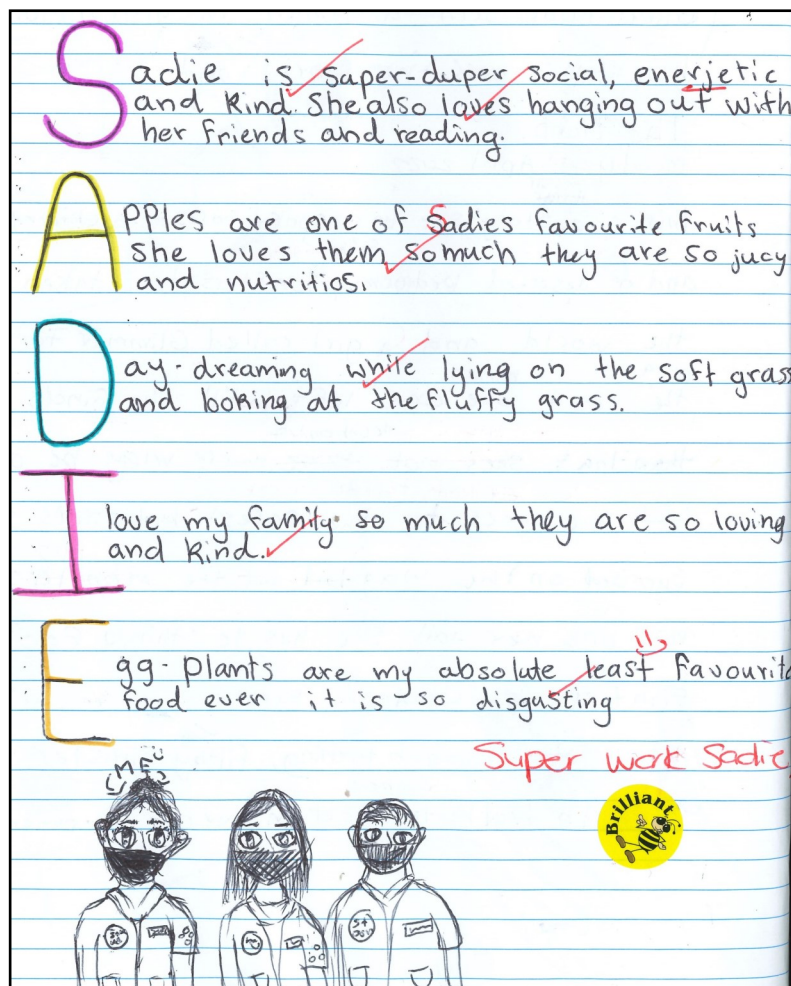 Sadie is super-duper social, enerjetic
and kind. She also loves hanging out with
her friends and reading.
Apples are one of Sadies favourite fruits
She loves them so much they are so jucy
and nutritios.
Day-dreaming while lying on the soft grass
and looking at the fluffy grass.
I love my family so much they are so loving
and kind.
Egg-plants are my absolute least favourite
food ever it is so disgusting
Super work Sadie
ME
Brilliant